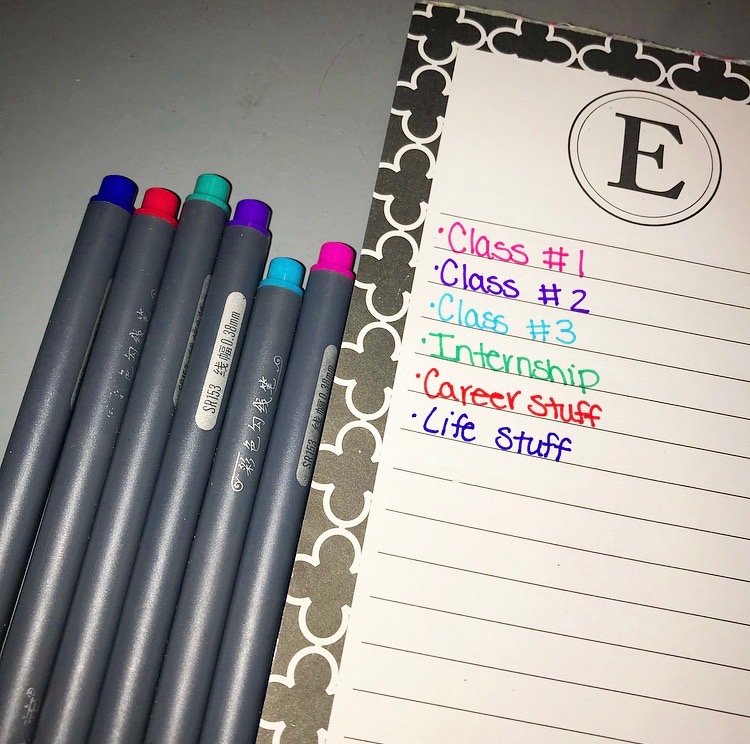 E
·Class #1
·Class #2
·Class #3
·Internship
·Career stuff
·Life stuff
SR153 线幅0.38mm
彩色勾线笔
SR153 线幅0.38mm